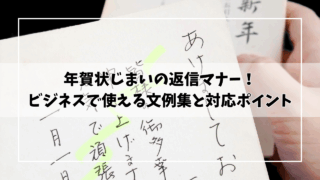 新年
あけましてお
御多幸
上げます
で頑張
一月一
年賀状じまいの返信マナー！
ビジネスで使える文例集と対応ポイント